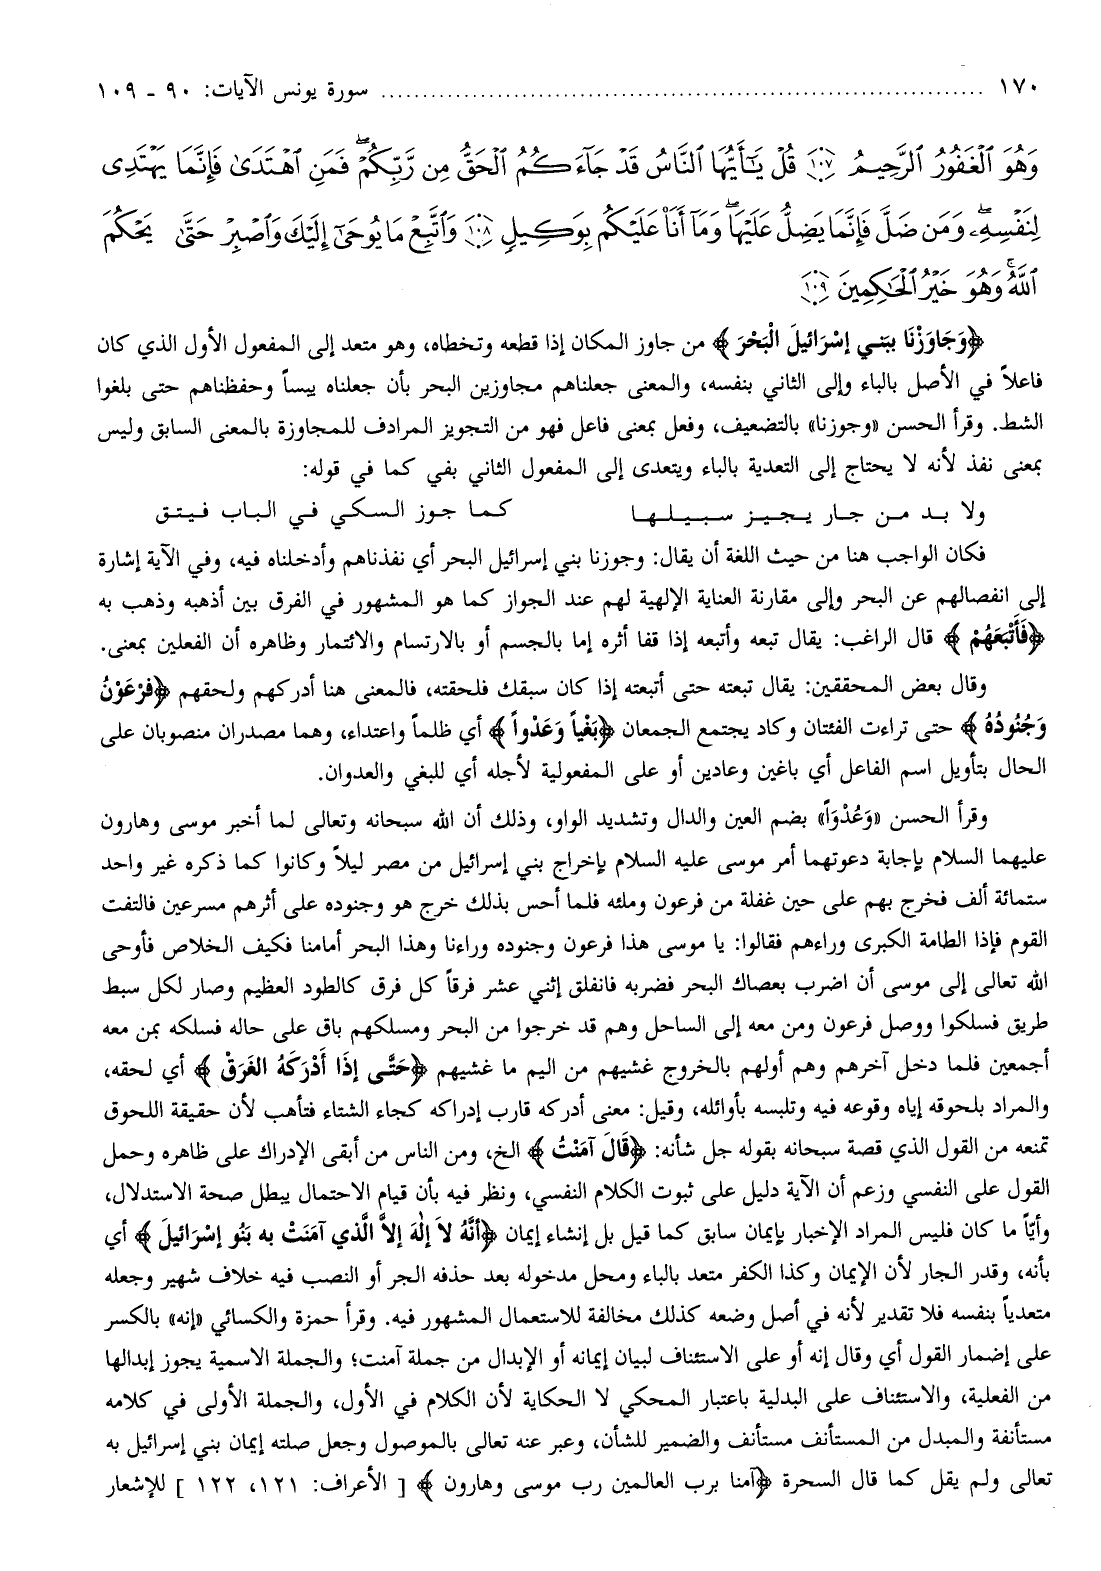 ١٧٠ ............................................................ سورة يونس الآيات: ٩٠ - ١٠٩
وَهُوَ ٱلْغَفُورُ ٱلرَّحِيمُ ﴿١٠٧﴾ قُلْ يَـٰٓأَيُّهَا ٱلنَّاسُ قَدْ جَآءَكُمُ ٱلْحَقُّ مِن رَّبِّكُمْ ۖ فَمَنِ ٱهْتَدَىٰ فَإِنَّمَا يَهْتَدِى
لِنَفْسِهِۦ ۖ وَمَن ضَلَّ فَإِنَّمَا يَضِلُّ عَلَيْهَا ۖ وَمَآ أَنَا۠ عَلَيْكُم بِوَكِيلٍ ﴿١٠٨﴾ وَٱتَّبِعْ مَا يُوحَىٰٓ إِلَيْكَ وَٱصْبِرْ حَتَّىٰ يَحْكُمَ
ٱللَّهُ ۚ وَهُوَ خَيْرُ ٱلْحَـٰكِمِينَ ﴿١٠٩﴾
﴿وَجَاوَزْنَا ببَني إسْرَائيلَ الْبَحْرَ﴾ من جاوز المكان إذا قطعه وتخطاه، وهو متعد إلى المفعول الأول الذي كان
فاعلاً في الأصل بالباء وإلى الثاني بنفسه، والمعنى جعلناهم مجاوزين البحر بأن جعلناه يبساً وحفظناهم حتى بلغوا
الشط. وقرأ الحسن «وجوزنا» بالتضعيف، وفعل بمعنى فاعل فهو من التجويز المرادف للمجاوزة بالمعنى السابق وليس
بمعنى نفذ لأنه لا يحتاج إلى التعدية بالباء ويتعدى إلى المفعول الثاني بفي كما في قوله:
ولا بد من جار يجيز سبيلها كما جوز السكي في الباب فيتق
فكان الواجب هنا من حيث اللغة أن يقال: وجوزنا بني إسرائيل البحر أي نفذناهم وأدخلناه فيه، وفي الآية إشارة
إلى انفصالهم عن البحر وإلى مقارنة العناية الإلهية لهم عند الجواز كما هو المشهور في الفرق بين أذهبه وذهب به
﴿فَأَتْبَعَهُمْ﴾ قال الراغب: يقال تبعه وأتبعه إذا قفا أثره إما بالجسم أو بالارتسام والائتمار وظاهره أن الفعلين بمعنى.
وقال بعض المحققين: يقال تبعته حتى أتبعته إذا كان سبقك فلحقته، فالمعنى هنا أدركهم ولحقهم ﴿فرْعَوْنُ
وَجُنُودُهُ﴾ حتى تراءت الفئتان وكاد يجتمع الجمعان ﴿بَغْياً وَعَدْواً﴾ أي ظلماً واعتداء، وهما مصدران منصوبان على
الحال بتأويل اسم الفاعل أي باغين وعادين أو على المفعولية لأجله أي للبغي والعدوان.
وقرأ الحسن «وَعُدُوّاً» بضم العين والدال وتشديد الواو، وذلك أن الله سبحانه وتعالى لما أخبر موسى وهارون
عليهما السلام بإجابة دعوتهما أمر موسى عليه السلام بإخراج بني إسرائيل من مصر ليلاً وكانوا كما ذكره غير واحد
ستمائة ألف فخرج بهم على حين غفلة من فرعون وملئه فلما أحس بذلك خرج هو وجنوده على أثرهم مسرعين فالتفت
القوم فإذا الطامة الكبرى وراءهم فقالوا: يا موسى هذا فرعون وجنوده وراءنا وهذا البحر أمامنا فكيف الخلاص فأوحى
الله تعالى إلى موسى أن اضرب بعصاك البحر فضربه فانفلق إثني عشر فرقاً كل فرق كالطود العظيم وصار لكل سبط
طريق فسلكوا ووصل فرعون ومن معه إلى الساحل وهم قد خرجوا من البحر ومسلكهم باق على حاله فسلكه بمن معه
أجمعين فلما دخل آخرهم وهم أولهم بالخروج غشيهم من اليم ما غشيهم ﴿حَتَّى إذَا أَدْرَكَهُ الغَرَقُ﴾ أي لحقه،
والمراد بلحوقه إياه وقوعه فيه وتلبسه بأوائله، وقيل: معنى أدركه قارب إدراكه كجاء الشتاء فتأهب لأن حقيقة اللحوق
تمنعه من القول الذي قصة سبحانه بقوله جل شأنه: ﴿قَالَ آمَنْتُ﴾ الخ، ومن الناس من أبقى الإدراك على ظاهره وحمل
القول على النفسي وزعم أن الآية دليل على ثبوت الكلام النفسي، ونظر فيه بأن قيام الاحتمال يبطل صحة الاستدلال،
وأيّاً ما كان فليس المراد الإخبار بإيمان سابق كما قيل بل إنشاء إيمان ﴿أنَّهُ لاَ إلٰهَ إلاَّ الَّذي آمَنَتْ به بَنُو إسْرَائيلَ﴾ أي
بأنه، وقدر الجار لأن الإيمان وكذا الكفر متعد بالباء ومحل مدخوله بعد حذفه الجر أو النصب فيه خلاف شهير وجعله
متعدياً بنفسه فلا تقدير لأنه في أصل وضعه كذلك مخالفة للاستعمال المشهور فيه. وقرأ حمزة والكسائي «إنه» بالكسر
على إضمار القول أي وقال إنه أو على الاستئناف لبيان إيمانه أو الإبدال من جملة آمنت؛ والجملة الاسمية يجوز إبدالها
من الفعلية، والاستئناف على البدلية باعتبار المحكي لا الحكاية لأن الكلام في الأول، والجملة الأولى في كلامه
مستأنفة والمبدل من المستأنف مستأنف والضمير للشأن، وعبر عنه تعالى بالموصول وجعل صلته إيمان بني إسرائيل به
تعالى ولم يقل كما قال السحرة ﴿آمنا برب العالمين رب موسى وهارون﴾ [ الأعراف: ١٢١، ١٢٢ ] للإشعار